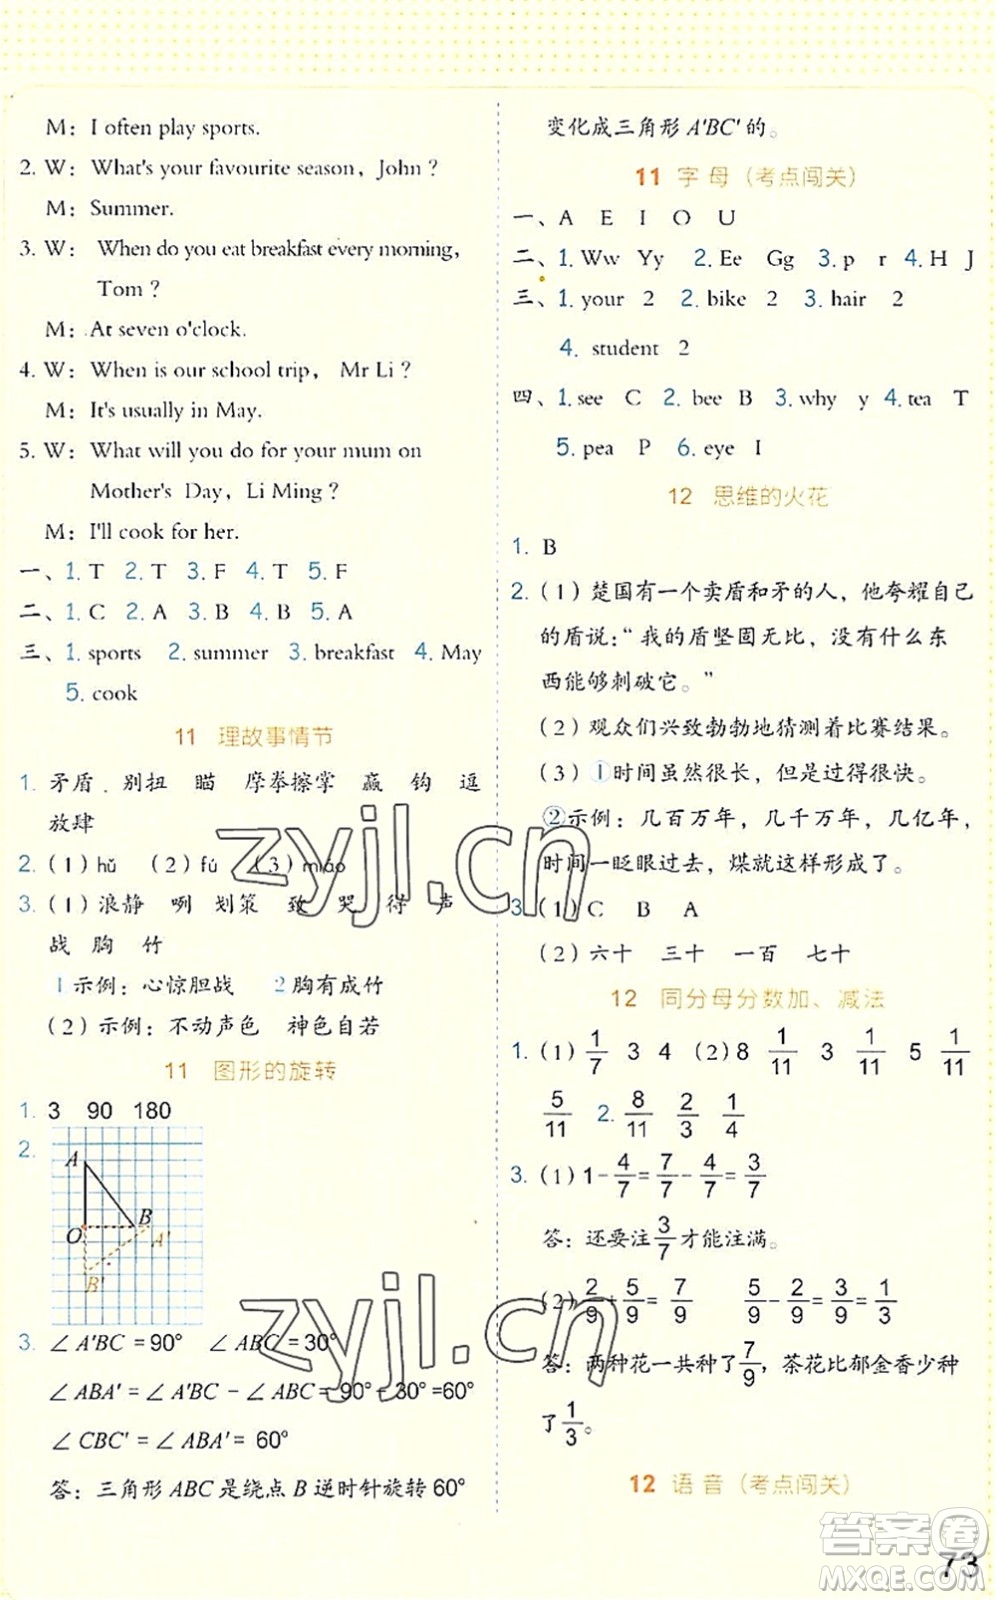 M: I often play sports.
2. W: What's your favourite season, John?
M: Summer.
3. W: When do you eat breakfast every morning,
Tom?
M: At seven o'clock.
4. W: When is our school trip, Mr Li?
M: It's usually in May.
5. W: What will you do for your mum on
Mother's Day, Li Ming?
M: I'll cook for her.
一、1. T 2. T 3. F 4. T 5. F
二、1. C 2. A 3. B 4. B 5. A
三、1. sports 2. summer 3. breakfast 4. May
5. cook
11 理故事情节
1. 矛盾 别扭 瞄 摩拳擦掌 赢 钩 逗
放肆
2. (1) hǔ (2) fú (3) miáo
3. (1) 浪静 咧 划策 致 哭 待 声
战 胸 竹
1 示例：心惊胆战 2 胸有成竹
(2) 示例：不动声色 神色自若
11 图形的旋转
1. 3 90 180
2.
A
O B A'
B'
3. ∠A'BC=90° ∠ABC=30°
∠ABA'=∠A'BC-∠ABC=90°-30°=60°
∠CBC'=∠ABA'=60°
答：三角形ABC是绕点B逆时针旋转60°
变化成三角形A'BC'的。
11 字母（考点闯关）
一、A E I O U
二、1. Ww Yy 2. Ee Gg 3. p r 4. H J
三、1. your 2 2. bike 2 3. hair 2
4. student 2
四、1. see C 2. bee B 3. why y 4. tea T
5. pea P 6. eye I
12 思维的火花
1. B
2. (1) 楚国有一个卖盾和矛的人，他夸耀自己
的盾说：“我的盾坚固无比，没有什么东
西能够刺破它。”
(2) 观众们兴致勃勃地猜测着比赛结果。
(3) ①时间虽然很长，但是过得很快。
②示例：几百万年，几千万年，几亿年，
时间一眨眼过去，煤就这样形成了。
3. (1) C B A
(2) 六十 三十 一百 七十
12 同分母分数加、减法
1. (1) 1/7 3 4 (2) 8 1/11 3 1/11 5 1/11
5/11 2. 8/11 2/3 1/4
3. (1) 1-4/7=7/7-4/7=3/7
答：还要注3/7才能注满。
(2) 2/9+5/9=7/9 5/9-2/9=3/9=1/3
答：两种花一共种了7/9，茶花比郁金香少种
了1/3。
12 语音（考点闯关）
73
zyjl.cn
zyjl.cn
答案卷
MXQE.COM